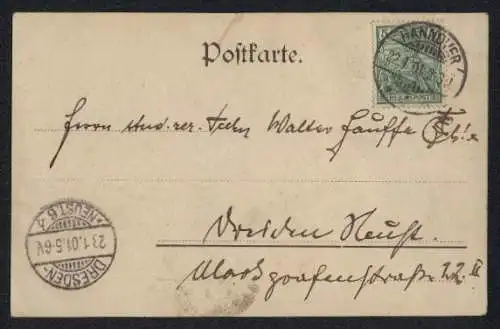 Postkarte.
HANNOVER 1
22.1.01.
Herrn stud. rer. Techn. Walter Hauffe
Dresden Neust.
Markgrafenstraße 22 II
DRESDEN-NEUST. 6
23.1.01.5-6V.